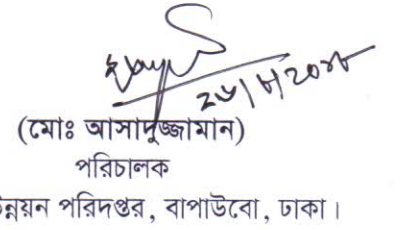 (মোঃ আসাদুজ্জামান)
পরিচালক
উন্নয়ন পরিদপ্তর, বাপাউবো, ঢাকা।